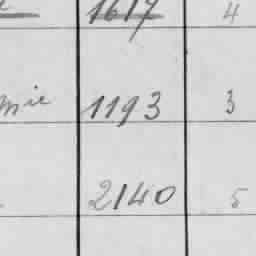 1617 4
mie 1193 3
2140 5